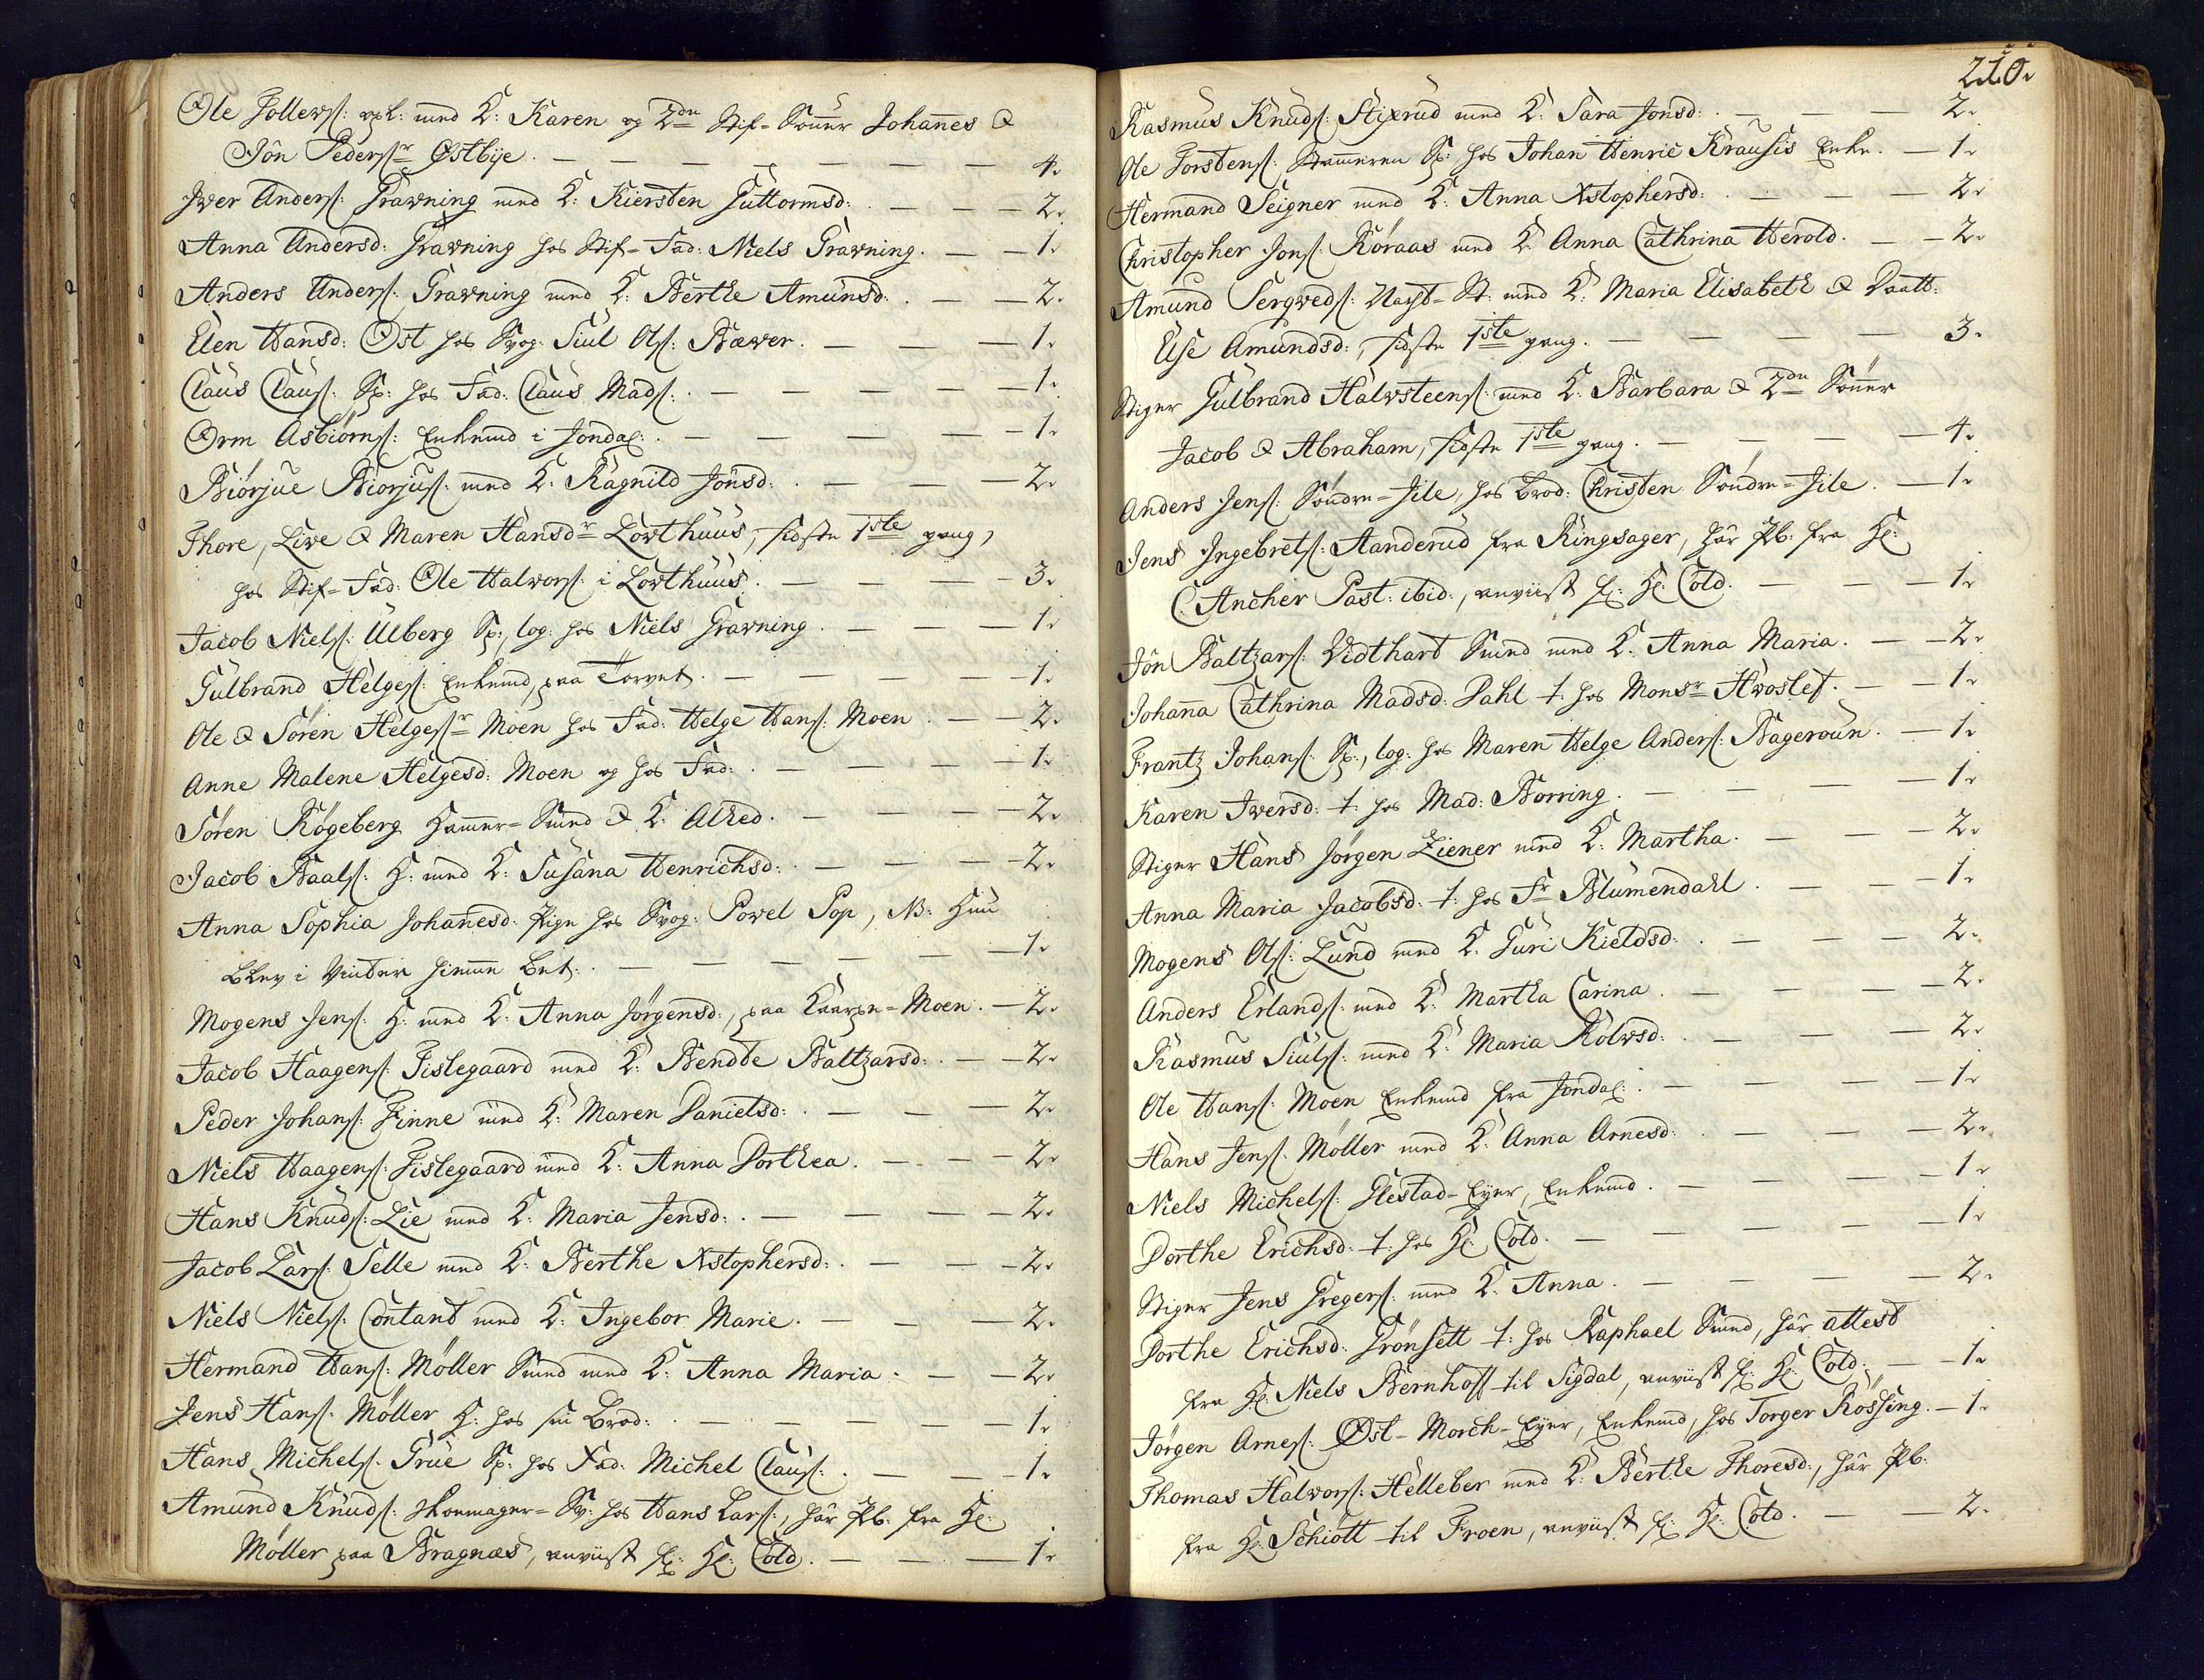 Ole Tollevs: med K: Karen og 2de Stif-Sönner Johannes &
Jön Peders:r Østbÿe. 4.
Jver Anders: Gravning med K: Kiersten Guttormsd: 2.
Anna Andersd: Gravning hos Stif-Fad: Niels Gravning. 1.
Anders Anders: Gravning med K: Berthe Amundsd: 2.
Elen Hansd: Öst hos Svog: Siul Ols: Bæver. 1.
Claus Claus: Sp: hos Fad: Claus Mads: 1.
Orm Asbiörns: Enkemd i Jondal: 1.
Biörjue Biorjus: med K: Ragnild Jonsd: 2.
Thore, Live & Maren Hansd:r Lovthuus, sidste 1ste gang,
hos Stif-Fad: Ole Halvors: i Lovthuus. 3.
Jacob Niels: Ulberg Sp:, log: hos Niels Gravning. 1.
Gulbrand Helges: Enkemd, paa Torvet. 1.
Ole & Sören Helges:r Moen hos Fad: Helge Hans: Moen. 2.
Anne Malene Helgesd: Moen og hos Fad: 1.
Sören Kögeberg Hammer-Smed & K: Alhed. 2.
Jacob Baals: H: med K: Susana Henrichsd: 2.
Anna Sophia Johanesd: Pige hos Svog: Povel Pop, NB: Hun
blev i Vinter hiemme bet: 1.
Mogens Jens: H: med K: Anna Jörgensd:, paa Kaarpe-Moen. 2.
Jacob Haagens: Tislegaard med K: Bendte Baltzarsd: 2.
Peder Johans: Finne med K: Maren Danielsd: 2.
Niels Haagens: Tislegaard med K: Anna Dorthea. 2.
Hans Knuds: Lie med K: Maria Jensd: 2.
Jacob Lars: Selle med K: Berthe Xstophersd: 2.
Niels Niels: Contant med K: Ingebor Marie. 2.
Hermand Hans: Möller Smed med K: Anna Maria. 2.
Jens Hans: Möller H: hos sin Brod: 1.
Hans Michels: Grue Sp: hos Fad: Michel Claus: 1.
Amund Knuds: Skomager-Sv: hos Hans Lars:, har Pb: fra Hr:
Möller paa Bragnæs, anviist f: Hr: Cold. 1.
210.
Rasmus Knuds: Stixrud med K: Sara Jonsd: 2.
Ole Torstens: Sp: hos Johan Henric Krausis Enke. 1.
Hermand Seigner med K: Anna Xstophersd: 2.
Christopher Jons: Röraas med K: Anna Cathrina Herold. 2.
Amund Sergveds: Nagt-St: med K: Maria Elisabeth & Daatt:
Else Amundsd:, sidste 1ste gang. 3.
Stiger Gulbrand Halvsteens: med K: Barbara & 2de Sönner
Jacob & Abraham, sidste 1ste gang. 4.
Anders Jens: Söndre-Jile, hos Brod: Christen Söndre-Jile. 1.
Jens Ingebrets: Aanderud fra Ringsager, har Pb: fra Hr:
C: Ancher Past: ibid:, anviist f: Hr: Cold. 1.
Jön Baltzars: Vidthart Smed med K: Anna Maria. 2.
Johanna Cathrina Madsd: Dahl t: hos Monsr Hvoslef. 1.
Frantz Johans: Sp:, log: hos Maren Helge Anders: Bageroun. 1.
Karen Jversd: t: hos Mad: Borring. 1.
Stiger Hans Jörgen Ziener med K: Martha. 2.
Anna Maria Jacobsd: t: hos Fr Blumendahl. 1.
Mogens Ols: Lund med K: Guri Kieldsd: 2.
Anders Erlands: med K: Martha Carina. 2.
Rasmus Siuls: med K: Maria Rolvsd: 2.
Ole Hans: Moen Enkemd fra Jondal: 1.
Hans Jens: Möller med K: Anna Arnesd: 2.
Niels Michels: Glestad-Eyer, Enkemd. 1.
Dorthe Erichsd: t: hos Hr: Cold. 1.
Stiger Jens Gregers: med K: Anna. 2.
Dorthe Erichsd: Grönsett t: hos Raphael Smed, har attest
fra Hr: Niels Bernhoft til Sigdal, anviist f: Hr: Cold: 1.
Jörgen Arnes: Øst-Morch-Eyer, Enkemd, hos Torger Rössing. 1.
Thomas Halvors: Helleber med K: Berthe Thoresd:, har Pb:
fra Hr: Schiött til Froen, anviist f: Hr: Cold. 2.